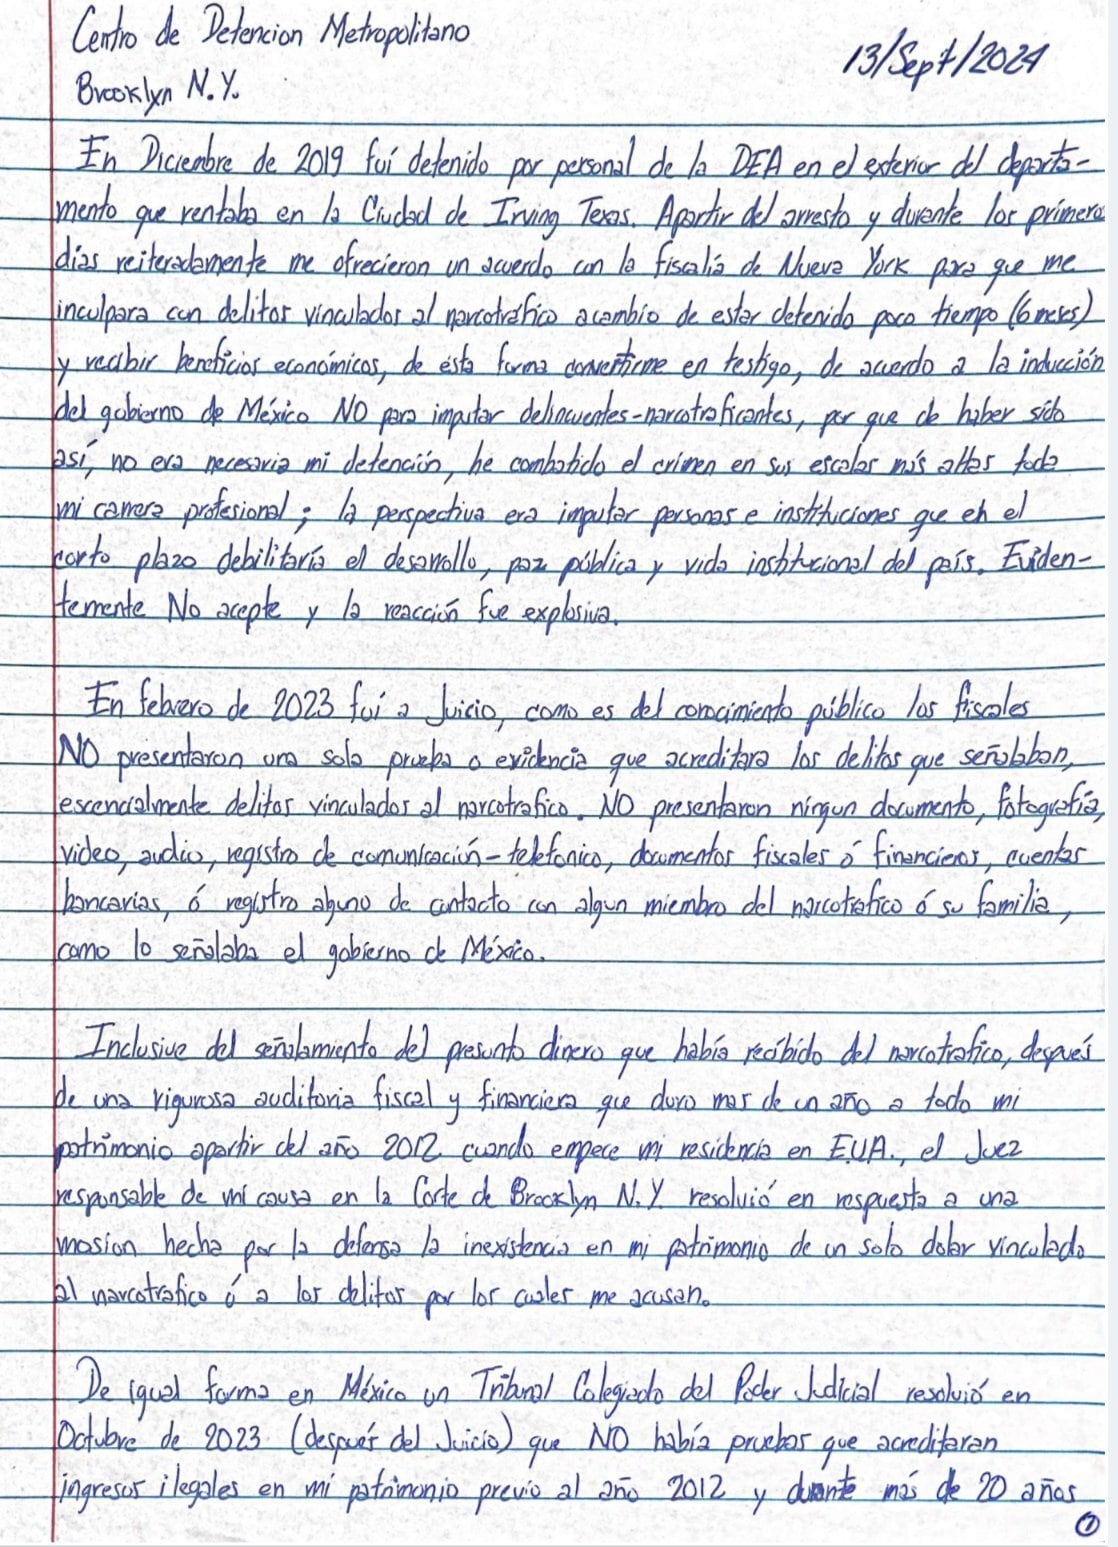 Centro de Detencion Metropolitano
13/Sept/2024
Brooklyn N.Y.
En Diciembre de 2019 fuí detenido por personal de la DEA en el exterior del departa-
mento que rentaba en la Ciudad de Irving Texas. Apartir del arresto y durante los primero
días reiteradamente me ofrecieron un acuerdo con la fiscalía de Nueva York para que me
inculpara con delitos vinculados al narcotráfico acambio de estar detenido poco tiempo (6 meses)
y recibir beneficios económicos, de ésta forma convertirme en testigo, de acuerdo a la inducción
del gobierno de México NO para imputar delincuentes-narcotraficantes, por que de haber sido
así, no era necesaria mi detención, he combatido el crimen en sus escalas más altas toda
mi carrera profesional; la perspectiva era imputar personas e instituciones que en el
corto plazo debilitaría el desarrollo, paz pública y vida institucional del país. Eviden-
temente No acepte y la reacción fue explosiva.
En febrero de 2023 fuí a Juicio, como es del conocimiento público los fiscales
NO presentaron una sola prueba o evidencia que acreditara los delitos que señalaban,
escencialmente delitos vinculados al narcotrafico. NO presentaron ningun documento, fotografía,
video, audio, registro de comunicación-telefonico, documentos fiscales ó financieros, cuentas
bancarias, ó registro alguno de contacto con algun miembro del narcotrafico ó su familia,
como lo señalaba el gobierno de México.
Inclusive del señalamiento del presunto dinero que había recibido del narcotrafico, después
de una rigurosa auditoria fiscal y financiera que duro mas de un año a todo mi
patrimonio apartir del año 2012 cuando empece mi residencia en EUA., el Juez
responsable de mi causa en la Corte de Brooklyn N.Y. resolvió en respuesta a una
mosion hecha por la defensa la inexistencia en mi patrimonio de un solo dolar vinculado
al narcotrafico ó a los delitos por los cuales me acusan.
De igual forma en México un Tribunal Colegiado del Poder Judicial resolvió en
Octubre de 2023 (después del Juicio) que NO había pruebas que acreditaran
ingresos ilegales en mi patrimonio previo al año 2012 y durante más de 20 años
1